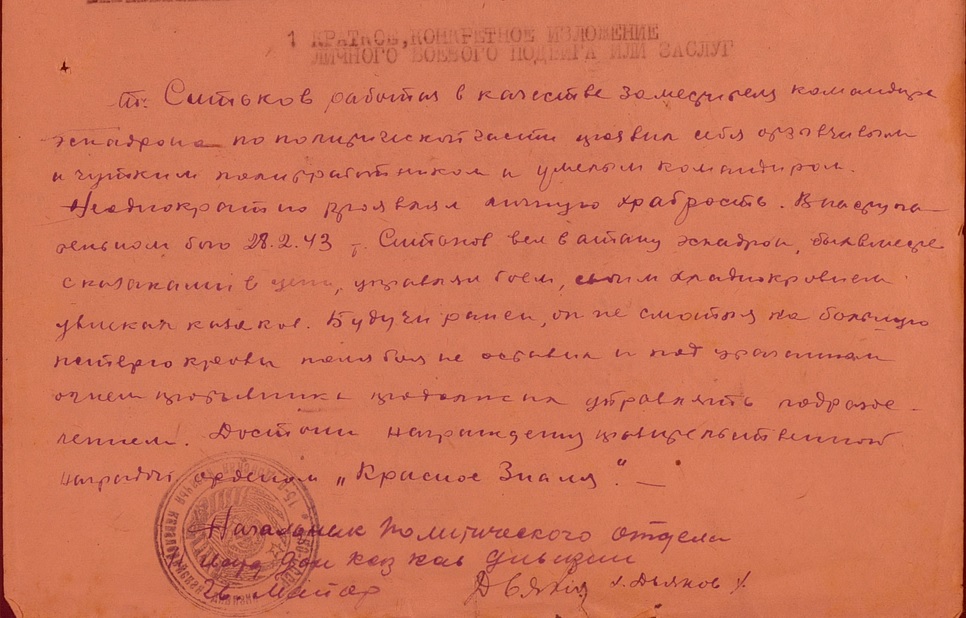 1 КРАТКОЕ, КОНКРЕТНОЕ ИЗЛОЖЕНИЕ
ЛИЧНОГО БОЕВОГО ПОДВИГА ИЛИ ЗАСЛУГ
т. Ситьков работая в качестве заместителя командира
эскадрона по политической части проявил себя отзывчивым
и чутким политработником и умелым командиром.
Неоднократно проявлял личную храбрость. В наступа-
тельном бою 28.2.43 т. Ситьков вел в атаку эскадрон, был вместе
с казаками в цепи, управлял боем, своим хладнокровием
увлекая казаков. Будучи ранен, он не смотря на большую
потерю крови поля боя не оставил и под ураганным
огнем противника продолжал управлять подразде-
лением. Достоин награждения правительственной
наградой орденом „Красное Знамя". —
Начальник политического отдела
Дон каз кав дивизии
Майор /Дьяков/.